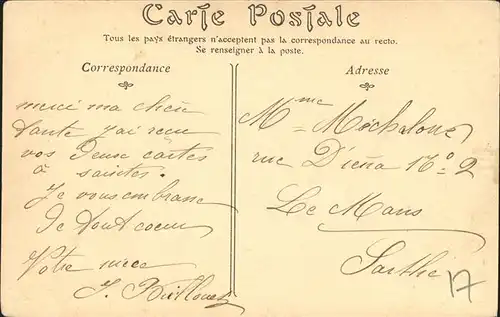 Carte Postale
Tous les pays étrangers n'acceptent pas la correspondance au recto.
Se renseigner à la poste.
Correspondance
merci ma chère
tante j'ai recu
vos deux cartes
à saintes.
Je vous embrasse
De tout coeur
Votre niece
J.
Adresse
Mme
rue D'iéna No 2
Le Mans
Sarthe
17